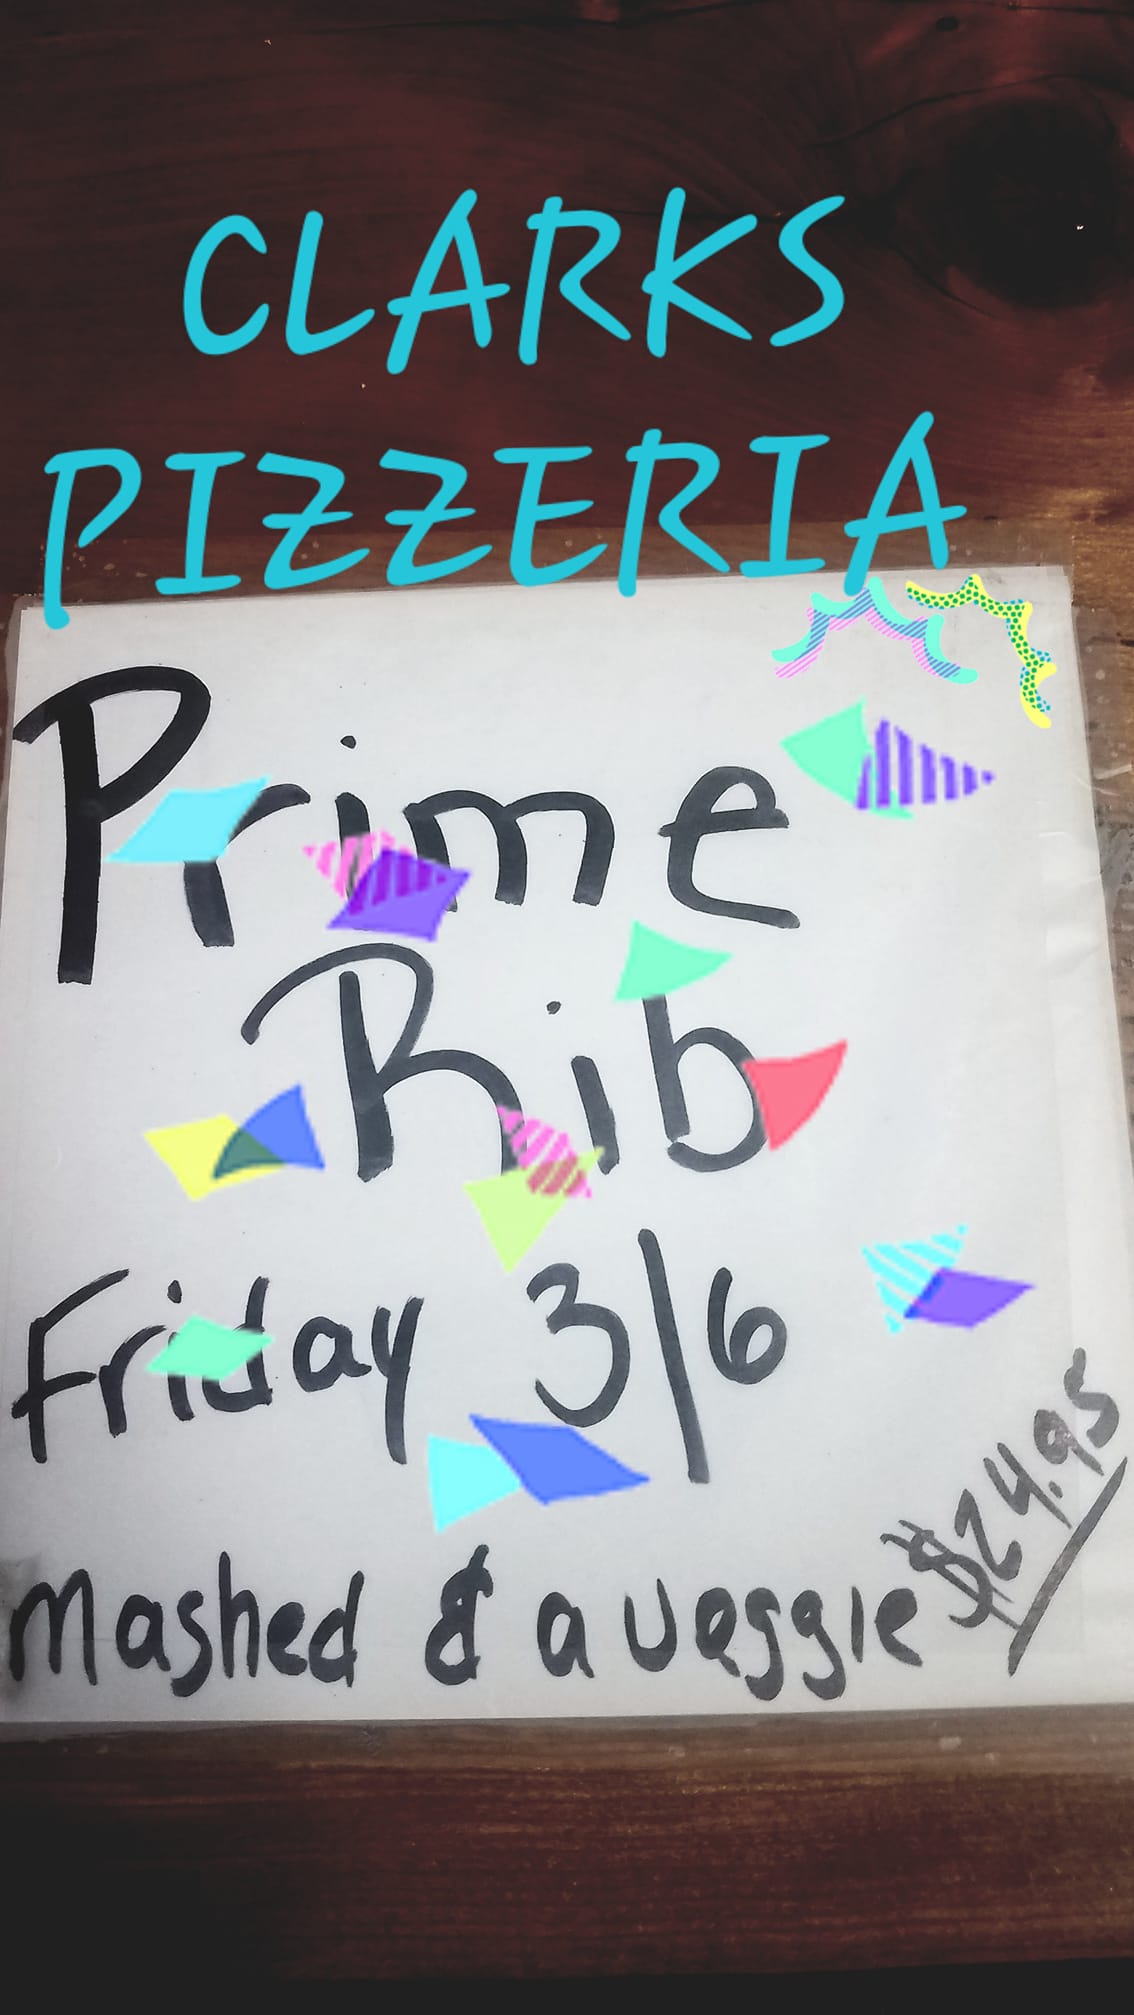 CLARKS
PIZZERIA
Prime
Rib
Friday 3/6
Mashed & a veggie
$24.95